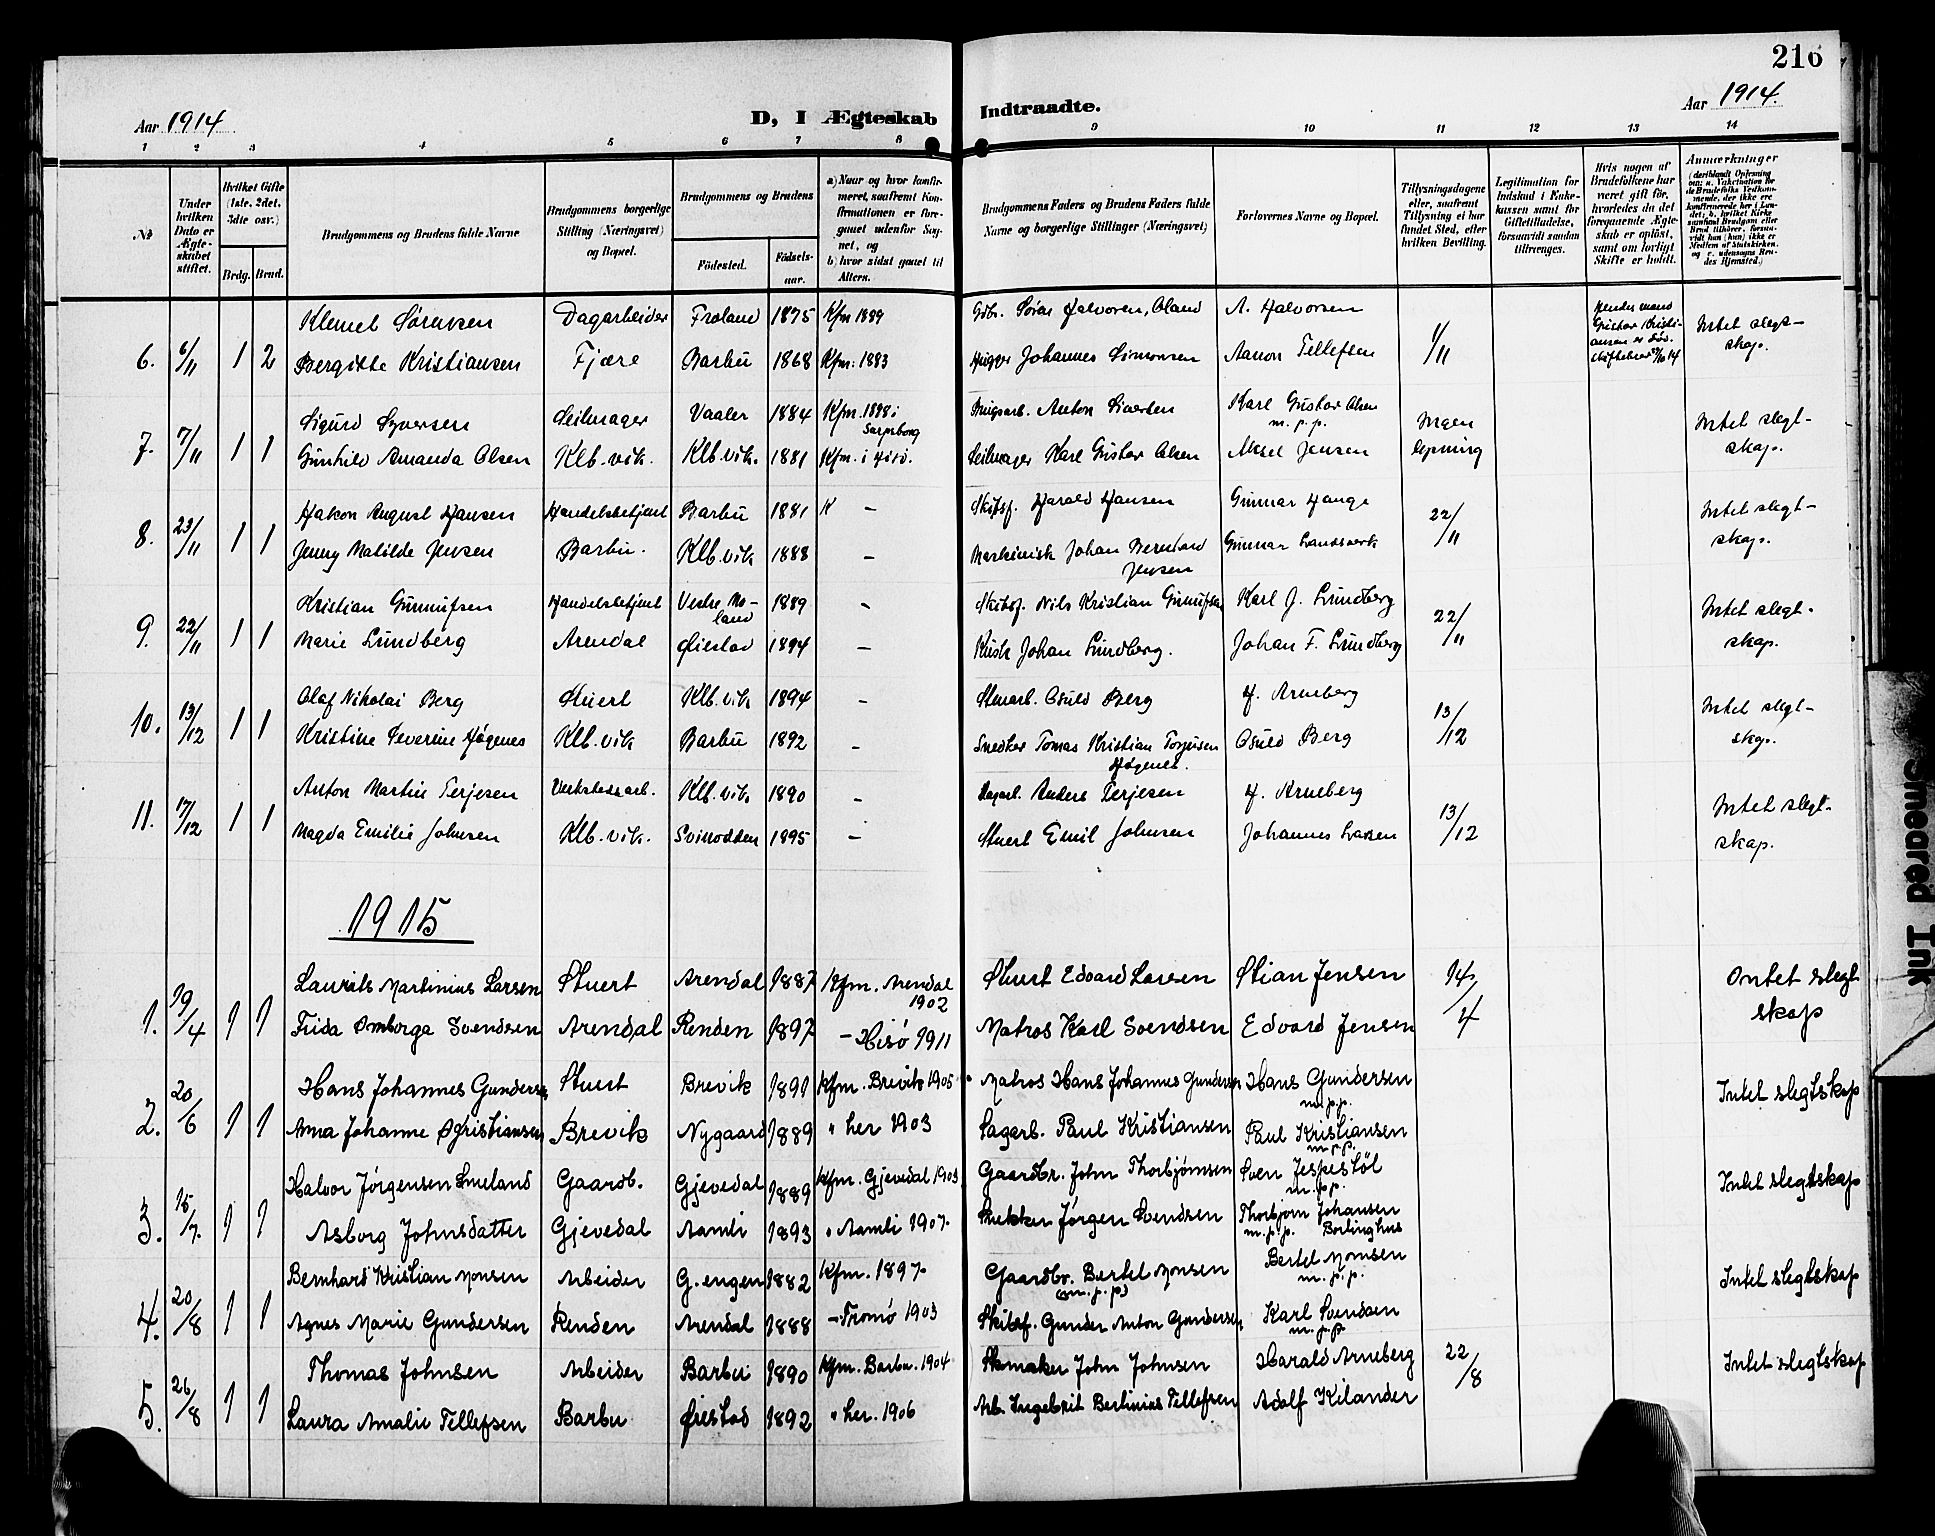 216
Aar 1914
D, I Ægteskab Indtraadte.
Aar 1914.
1 2 3 4 5 6 7 8 9 10 11 12 13 14
No
Under hvilken Dato er Ægteskabet stiftet.
Hvilket Gifte (1ste, 2det, 3die osv.)
Brdg. Brud.
Brudgommens og Brudens fulde Navne
Brudgommens borgerlige Stilling (Næringsvei) og Bopæl.
Brudgommens og Brudens
Fødested. Fødselsaar.
a) Naar og hvor konfirmeret, saafremt Konfirmationen er foregaaet udenfor Sognet, og b) hvor sidst gaaet til Alters.
Brudgommens Faders og Brudens Faders fulde Navne og borgerlige Stillinger (Næringsvei)
Forlovernes Navne og Bopæl.
Tillysningsdagene eller, saafremt Tillysning ei har fundet Sted, efter hvilken Bevilling.
Legitimation for Indskud i Enkekassen samt for Giftetilladelse, forsaavidt saadan tiltrænges.
Hvis nogen af Brudefolkene har været gift før, hvorledes da det foregaaende Ægteskab er opløst, samt om lovligt Skifte er holdt.
Anmærkninger (deriblandt Oplysning om: a. Vakcination for de Brudefolks Vedkommende, der ikke ere konfirmerede her i Landet; b. hvilket Kirkesamfund Brudgom eller Brud tilhører, forsaavidt han (hun) ikke er Medlem af Statskirken, og c. udensogns Brudes Hjemsted.)
Klemet Sørensen Dagarbeider Froland 1875 Kfm 1889 Gdbr. Søren Halvorsen, Øland A. Halvorsen
6. 6/11 1 2 Bergitte Kristiansen Fjære Barbu 1868 Kfm. 1883 Johannes Simonsen Aanon Tellefsen 1/11 Hendes mand Gustav Kristiansen er død. Intet slegtskap.
Sigurd Syversen Seilmager Vaaler 1884 Kfm. 1898 i Sarpsborg Anton Siversen Karl Gustav Olsen m.p.p.
7. 7/11 1 1 Gunhild Amanda Olsen Klb.vik. Klb.vik. 1881 Kfm. i Hisø. Seilmager Karl Gustav Olsen Aksel Jensen Ingen lysning Intet slegtskap.
Hakon August Hansen Handelsbetjent Barbu 1881 K – Skibsf. Harald Hansen Gunnar Hauge
8. 23/11 1 1 Jenny Matilde Jensen Barbu. Klb.vik 1888 – Maskinist Johan Bernhard Jensen Gunnar Landsverk 22/11 Intet slegtskap.
Kristian Gunnufsen Handelsbetjent Vestre Moland 1889 – Skibsf. Nils Kristian Gunnufsen Karl J. Lundberg
9. 22/11 1 1 Marie Lundberg Arendal Øiestad 1894 – Kusk Johan Lundberg. Johan F. Lundberg 22/11 Intet slegtskap.
Olaf Nikolai Berg Stuert Klb.vik 1894 – Stenarb. Osuld Berg H. Arneberg
10. 13/12 1 1 Kristine Severine Høgenes Klb.vik Barbu 1892 – Snedker Tomas Kristian Torjusen Høgenes. Osuld Berg 13/12 Intet slegtskap.
Anton Martin Terjesen Verkstedsarb. Klb.vik. 1890 – Dagarb. Anders Terjesen H. Arneberg
11. 17/12 1 1 Magda Emilie Johnsen Klb.vik. Svinodden 1895 – Stuert Emil Johnsen Johannes Larsen 13/12 Intet slegtskap.
1915
Laurits Martinius Larsen Stuert Arendal 1887 Kfm. Arendal 1902 Stuert Edvard Larsen Stian Jensen
1. 19/4 1 1 Frida Omborga Svendsen Arendal Renden 1897 – Hisø 1911 Matros Karl Svendsen Edvard Jensen 14/4 Intet slegtskap
Hans Johannes Gundersen Stuert Brevik 1891 Kfm. Brevik 1905 Matros Hans Johannes Gundersen Hans Gundersen m.p.p.
2. 20/6 1 1 Anna Johanne Kristiansen Brevik Nygaard 1889 " her 1903 Sagarb. Paul Kristiansen Paul Kristiansen m.p.p. Intet slegtskap
Halvor Jørgensen Smeland Gaardb. Gjevedal 1889 Kfm. Gjevedal 1903 Gaardbr. John Thorbjørnsen Sven Jespestøl m.p.p.
3. 15/7. 1 1 Asborg Johnsdatter Gjevedal Aamli 1893 " Aamli 1907. Snekker Jørgen Svendsen Thorbjørn Johansen m.p.p. Berlinghus Intet slegtskap
Bernhard Kristian Monsen Arbeider G.engen 1882 Kfm. 1897 Gaardbr. Bertel Monsen (m.p.p) Bertel Monsen m.p.p.
4. 20/8 1 1 Agnes Marie Gundersen Renden Arendal 1888 – Tromø 1903 Skibsf. Gunder Anton Gundersen Karl Svendsen m.p.p Intet slegtskap
Thomas Johnsen Arbeider Barbu 1890 Kfm. Barbu. 1904 Skomaker John Johnsen Harald Arneberg
5. 26/8 1 1 Laura Amalie Tellefsen Barbu Øiestad 1892 " her. 1906 Arb. Ingebrit Bertinius Tellefsen Adolf Kilander 22/8 Intet slegtskap
Smeared Ink